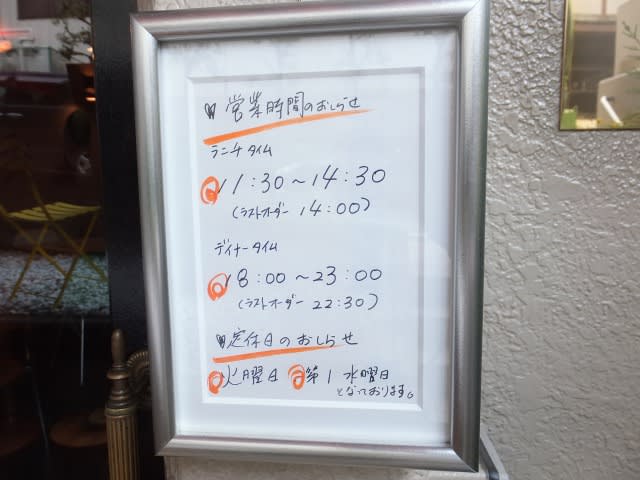 ♥ 営業時間のおしらせ
ランチタイム
11:30～14:30
(ラストオーダー 14:00)
ディナータイム
18:00～23:00
(ラストオーダー 22:30)
♥定休日のおしらせ
火曜日 第1 水曜日
となっております。